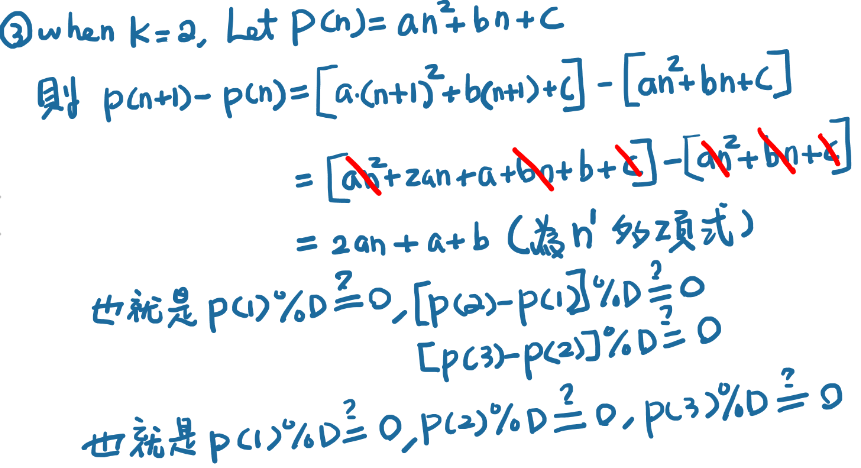 ③ when k=2, Let P(n)= an²+bn+c
則 p(n+1)- p(n)=[a·(n+1)²+b(n+1)+c] - [an²+bn+c]
= [an²+2an+a+bn+b+c]-[an²+bn+c]
= 2an+a+b (為n¹多項式)
也就是 p(1)%D≟0, [p(2)-p(1)]%D≟0
[p(3)-p(2)]%D≟0
也就是 p(1)%D≟0, p(2)%D≟0, p(3)%D≟0